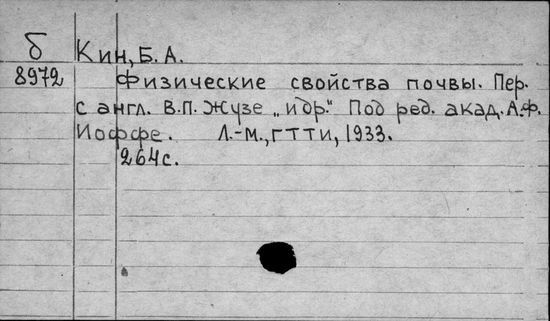 б Кин, Б. А.
8972 Физические свойства почвы. Пер.
с англ. В.П. Жузе „и др." Под ред. акад. А.Ф.
Иоффе. Л.-М., ГТТИ, 1933.
264с.